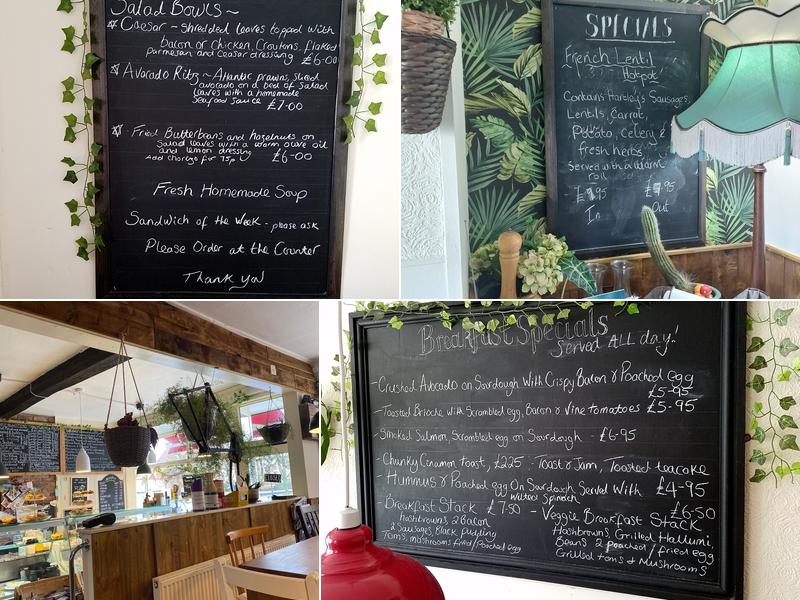 Salad Bowls ~
Caesar - shredded leaves topped with
bacon or chicken, Croutons, flaked
parmesan and Ceasar dressing £6-00
Avocado Ritz ~ Atlantic prawns, sliced
avocado on a bed of salad
leaves with a homemade
seafood sauce £7-00
Fried Butterbeans and hazelnuts on
salad leaves with a warm olive oil
and lemon dressing
Add chorizo for 75p £6-00
Fresh Homemade Soup
Sandwich of the Week - please ask
Please Order at the Counter
Thank you
SPECIALS
French Lentil
Hotpot
Contains Hartley's Sausages,
Lentils, Carrot,
Potato, Celery &
fresh herbs
Served with a warm
roll
In Out
Breakfast Specials
Served ALL day!
- Crushed Avocado on Sourdough With Crispy Bacon & Poached egg
£5-95
- Toasted Brioche with Scrambled egg, Bacon & Vine tomatoes £5-95
- Smoked Salmon, Scrambled egg on Sourdough - £6-95
Chunky Cinnamon toast, £2.25 : Toast & Jam, Toasted teacake
- Hummus & Poached egg On Sourdough Served With £4-95
Wilted Spinach
- Breakfast Stack £7-50 - Veggie Breakfast Stack £6-50
Hashbrowns, 2 Bacon
2 Sausages, Black pudding
Toms, mushrooms fried/poached egg
Hashbrowns, Grilled Hallumi
Beans 2 poached / fried egg
Grilled toms & Mushrooms